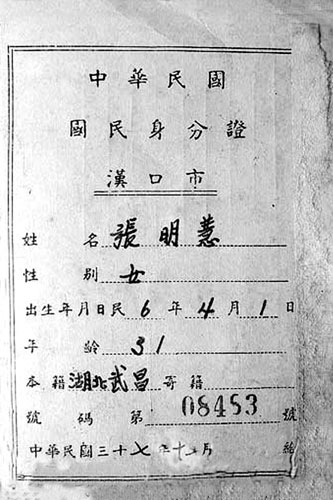 中華民國
國民身分證
漢口市
姓名 張明慧
性別 女
出生年月日民6年4月1日
年齡 31
本籍湖北武昌寄籍
號碼第 08453 號
中華民國三十七年十二月